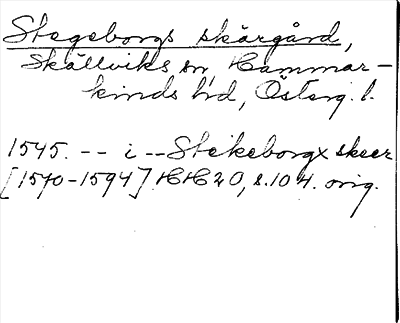 Stegeborgs skärgård,
Skällviks sn, Hammar-
kinds hd, Österg. l.
1545. -- i -- Stekeborgx skeer
[1570-1594] HH 20, s. 104. orig.